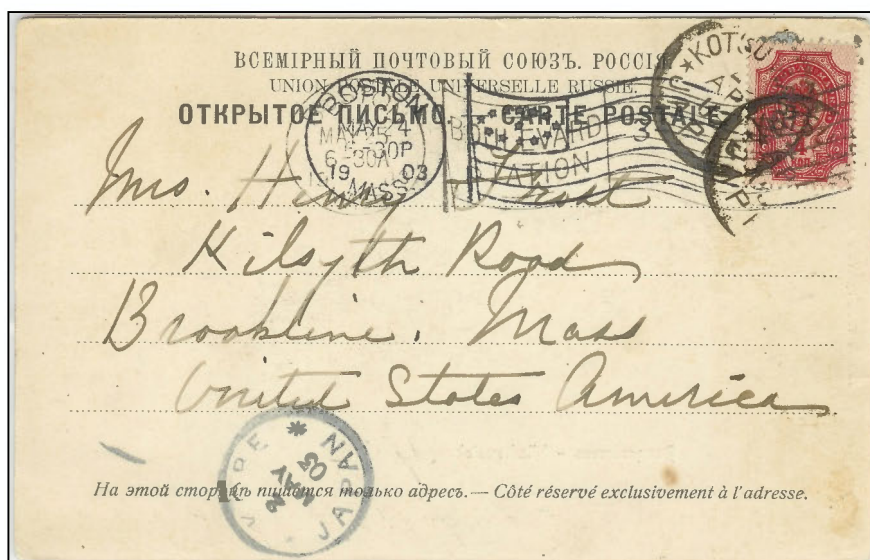 ВСЕМІРНЫЙ ПОЧТОВЫЙ СОЮЗЪ. РОССІЯ
UNION POSTALE UNIVERSELLE RUSSIE.
ОТКРЫТОЕ ПИСЬМО. — CARTE POSTALE
BOSTON
MAY 4
6-30P
19 03
MASS.
STATION
KOTSU
4
Mrs. Henry
Kilsyth Road
Brookline, Mass
United States America
JAPAN
MAY
03
На этой сторонѣ пишется только адресъ. — Côté réservé exclusivement à l'adresse.